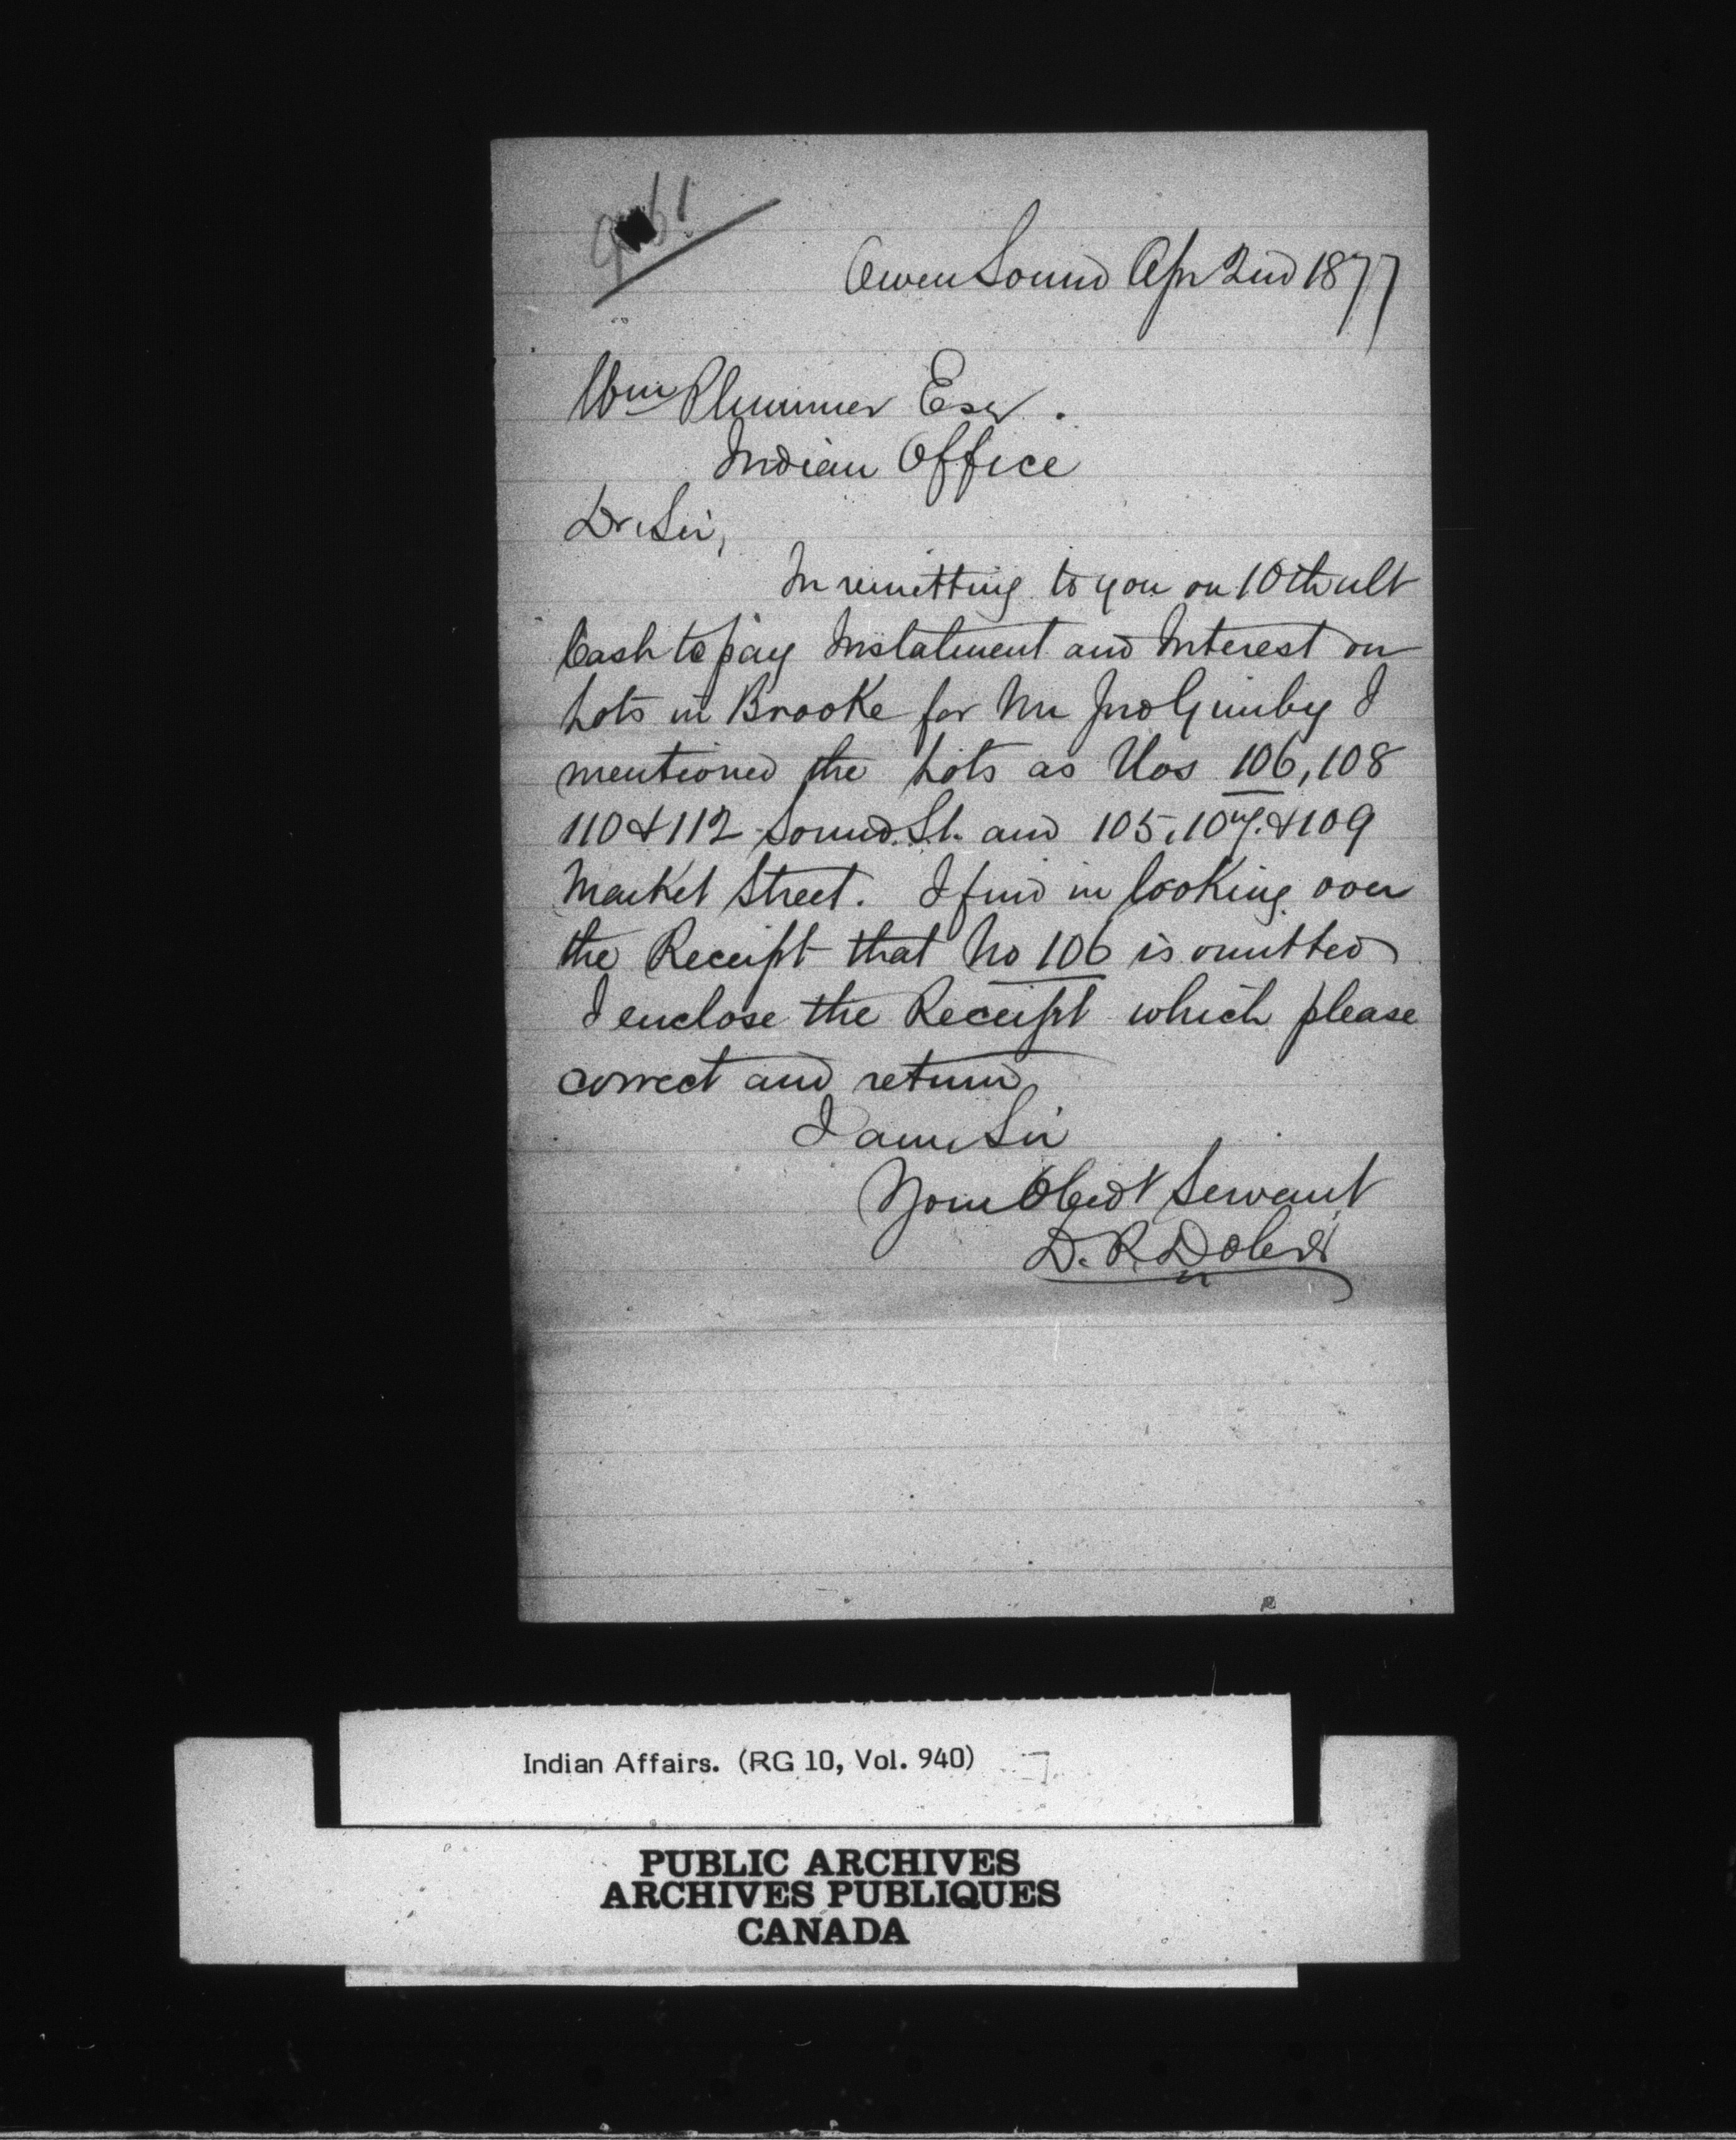 Owen Sound Apr 2nd 1877
Wm Plummer Esq.
Indian Office
Dr Sir,
In remitting to you on 10th ult
Cash to pay Instalment and Interest on
Lots in Brooke for Mr Jno Quinby I
mentioned the Lots as Nos 106, 108
110 & 112 Sound St. and 105, 107, & 109
Market Street. I find in looking over
the Receipt that No 106 is omitted
I enclose the Receipt which please
correct and return
I am Sir
Your Obedt Servant
D. R. Dobie
Indian Affairs. (RG 10, Vol. 940)
PUBLIC ARCHIVES
ARCHIVES PUBLIQUES
CANADA